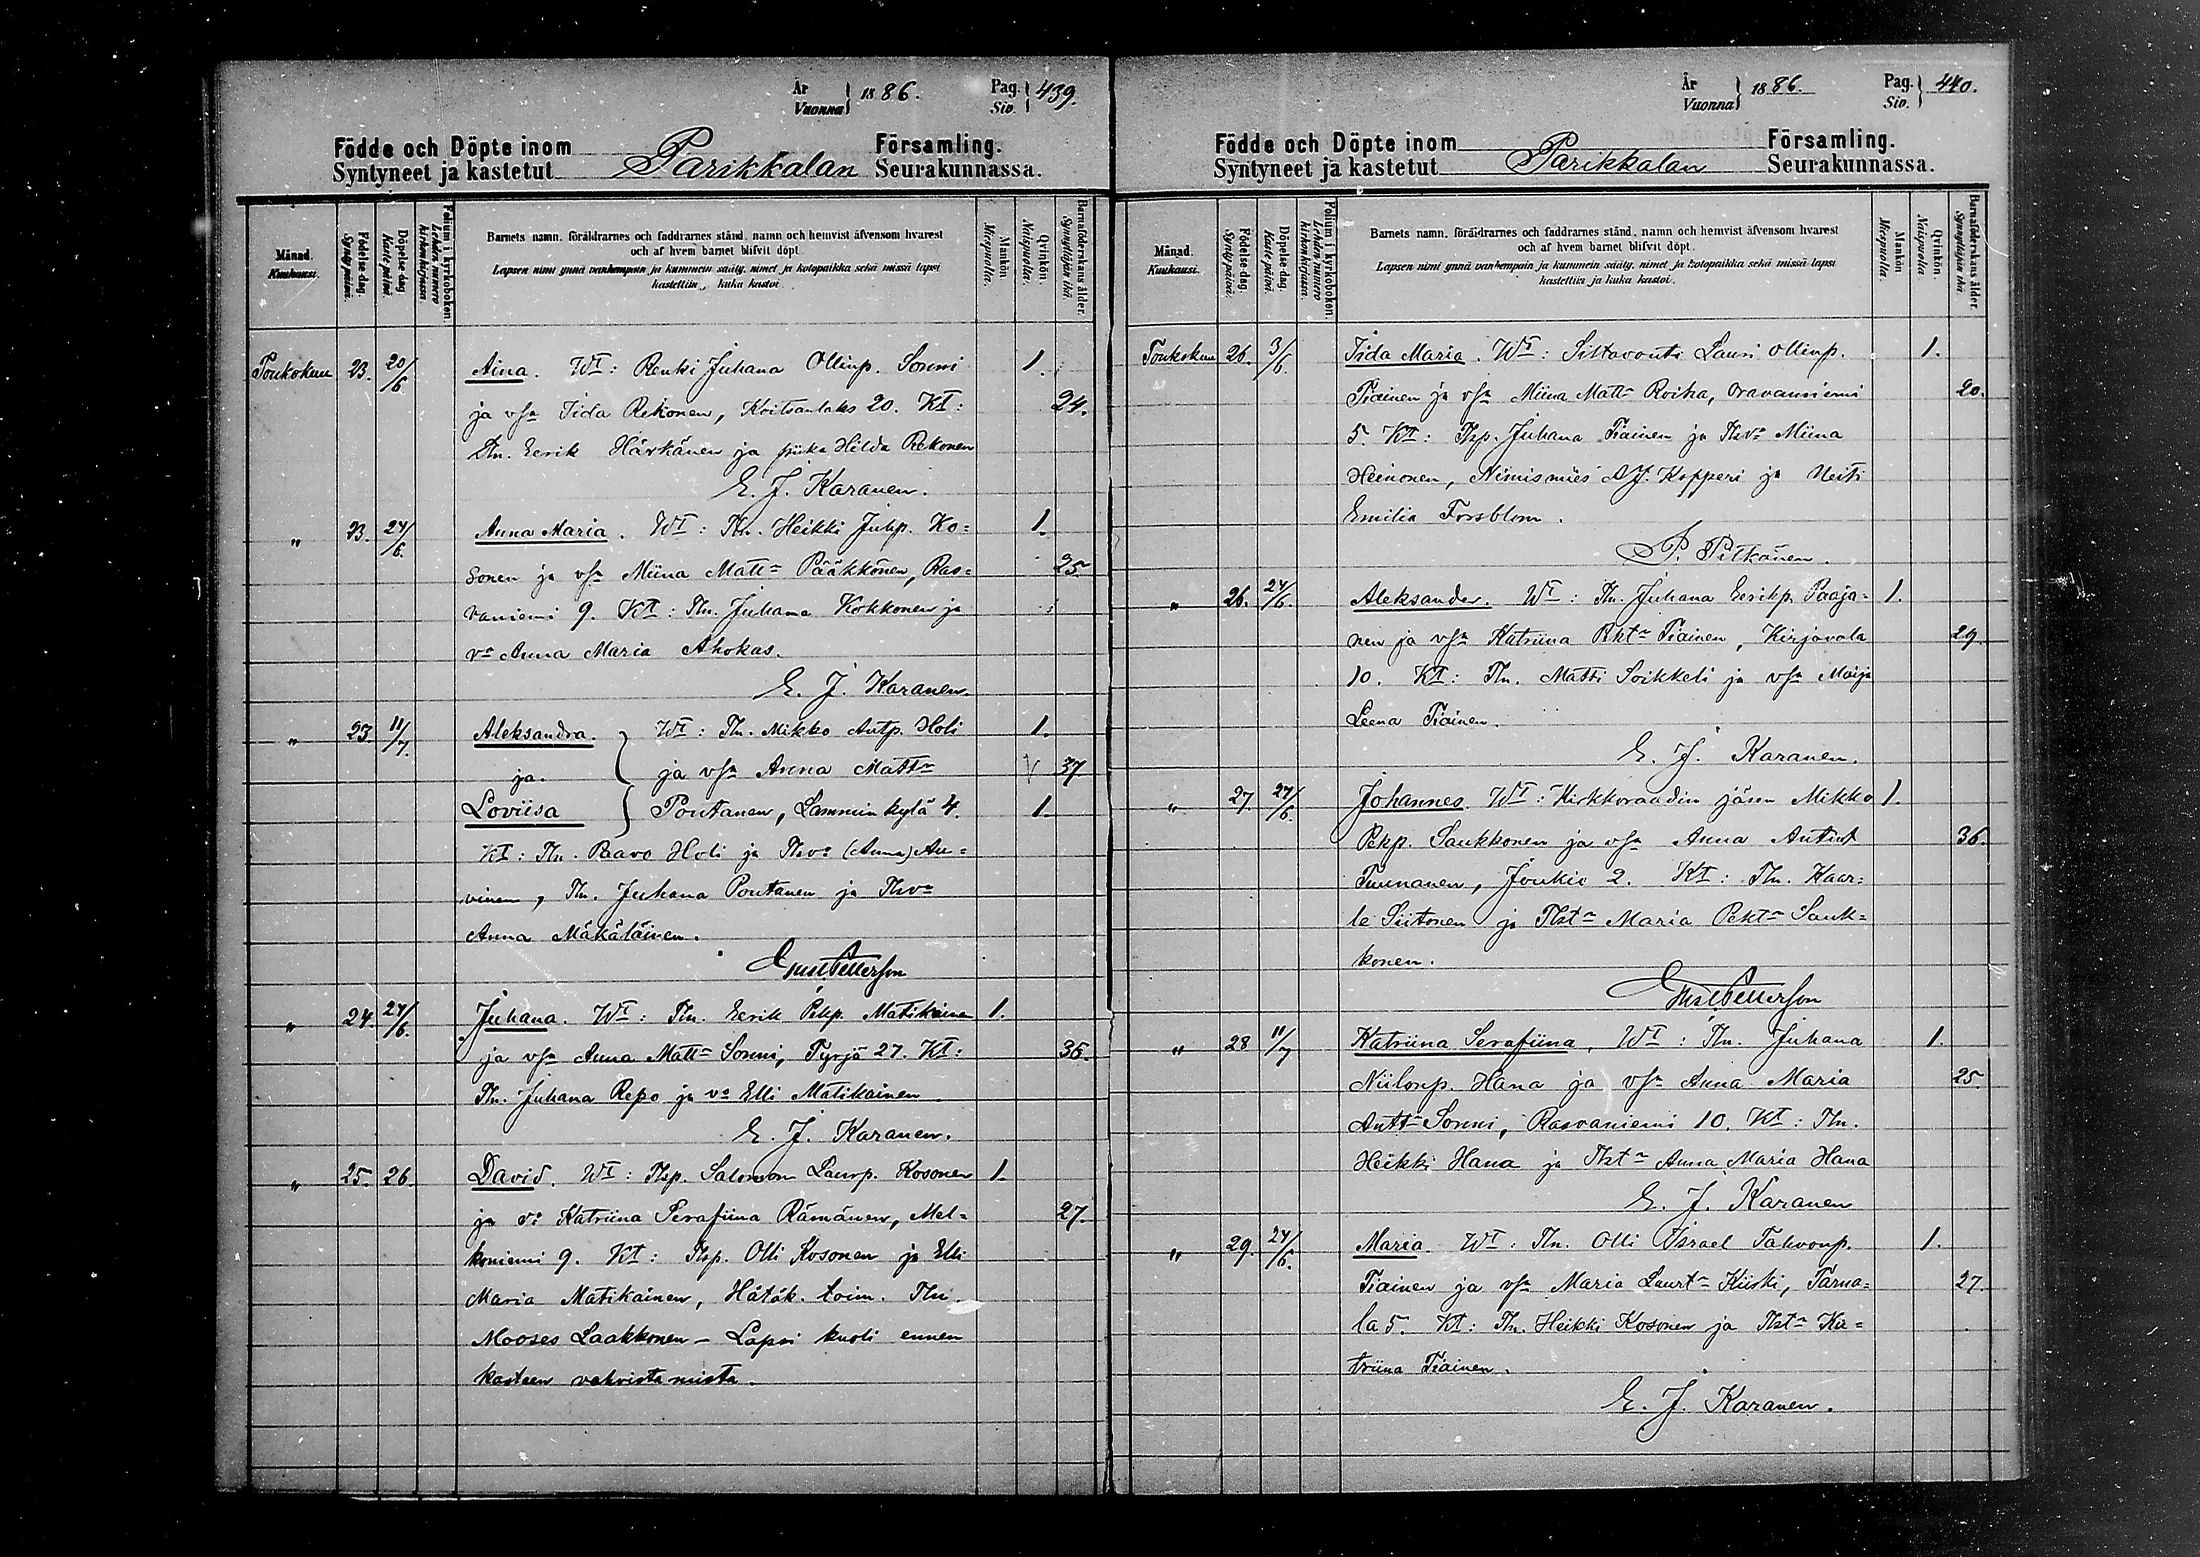 År
Vuonna } 1886.
Pag.
Siv. } 439.
Födde och Döpte inom Parikkalan Församling.
Syntyneet ja kastetut Seurakunnassa.
Månad. Kuukausi.
Födelse-dag. Syntymäpäivä.
Döpelse-dag. Kaste-päivä.
Folium i kyrkoboken. Lehden numero kirkonkirjassa.
Barnets namn, föräldrarnes och faddrarnes stånd, namn och hemvist äfvensom hvarest
och af hvem barnet blifvit döpt.
Lapsen nimi ynnä vanhempain ja kummein sääty, nimet ja kotopaikka sekä missä lapsi
kastettiin, kuka kastoi.
Mankön Miespuolia.
Qvinkön. Naispuolia.
Barnaföderskans ålder. Synnyttäjän ikä.
Toukokuu 23. 20/6 Aina. Wt: Renki Juhana Ollinp. Sonni 1.
ja vsa Iida Rekonen, Koitsanlaks 20. Kt: 24.
Tln. Eerik Härkänen ja piika Hilda Rekonen
E. J. Karanen.
„ 23. 24/6. Anna Maria. Wt: Tln. Heikki Juhp. Ko= 1.
sonen ja vsa Miina Mattr Pääkkönen, Ras= 25.
vaniemi 9. Kt: Tln. Juhana Kokkonen ja
vo Anna Maria Ahokas.
E. J. Karanen
„ 23. 11/7. Aleksandra. Wt: Tln. Mikko Antp. Holi 1.
ja. ja vsa Anna Mattr V 37
Loviisa Poutanen, Lamminkylä 4. 1.
Kt: Tln. Paavo Holi ja Tlvo (Anna) Au=
vinen, Tln. Juhana Poutanen ja Tlvo
Anna Mäkäläinen.
Gust Petterson
„ 24. 24/6. Juhana. Wt: Tln. Eerik Pekp. Matikainen 1.
ja vsa Anna Mattr Sonni, Tyrjä 27. Kt: 36.
Tln. Juhana Repo ja vo Elli Matikainen
E. J. Karanen.
„ 25. 26. David. Wt: Tlsp. Salomon Laurp. Kosonen 1.
ja vo Katriina Serafiina Rämänen, Mel= 27.
koniemi 9. Kt: Tlsp. Olli Kosonen ja Elli
Maria Matikainen, Hätäk. toim. Tln.
Mooses Laakkonen – Lapsi kuoli ennen
kasteen vahvistamista.
År
Vuonna } 1886.
Pag.
Siv. } 440.
Födde och Döpte inom Parikkalan Församling.
Syntyneet ja kastetut Seurakunnassa.
Månad. Kuukausi.
Födelse-dag. Syntymäpäivä.
Döpelse-dag. Kaste-päivä.
Folium i kyrkoboken. Lehden numero kirkonkirjassa.
Barnets namn, föräldrarnes och faddrarnes stånd, namn och hemvist äfvensom hvarest
och af hvem barnet blifvit döpt.
Lapsen nimi ynnä vanhempain ja kummein sääty, nimet ja kotopaikka sekä missä lapsi
kastettiin ja kuka kastoi.
Mankön Miespuolia.
Qvinkön. Naispuolia.
Barnaföderskans ålder. Synnyttäjän ikä.
Toukokuu 26. 3/6 Iida Maria. Wt: Siltavouti Lauri Ollinp. 1.
Tiainen ja vsa Miina Mattr Roiha, Oravanniemi 20.
5. Kt: Tlsp. Juhana Tiainen ja Tlsvo Miina
Heinonen, Nimismies A.J. Kopperi ja Neiti
Emilia Forsblom.
P. Pitkänen.
„ 26. 24/6. Aleksander. Wt: Tln. Juhana Eerikp. Paaja= 1.
nen ja vsa Katriina Pektr Tiainen, Kirjavala 29.
10. Kt: Tln. Matti Soikkeli ja vsa Maija
Leena Tiainen.
E. J. Karanen.
„ 27. 24/6. Johannes. Wt: Kirkkoraadin jäsen Mikko 1.
Pekp. Saukkonen ja vsa Anna Antint 36.
Tuunanen, Joukio 2. Kt: Tln. Kaar=
le Siitonen ja Tlstr Maria Pektr Sauk=
konen.
Gust Petterson
„ 28 11/7 Katriina Serafiina. Wt: Tln. Juhana 1.
Niilonp. Hana ja vsa Anna Maria 25.
Anttr Sonni, Rasvaniemi 10. Kt: Tln.
Heikki Hana ja Tlstr Anna Maria Hana
E. J. Karanen
„ 29. 24/6. Maria. Wt: Tln. Olli Israel Tahvonp. 1.
Tiainen ja vsa Maria Laurtr Kiiski, Tarna= 27.
la 5. Kt: Tln. Heikki Kosonen ja Tlstr Ka=
triina Tiainen.
E. J. Karanen.